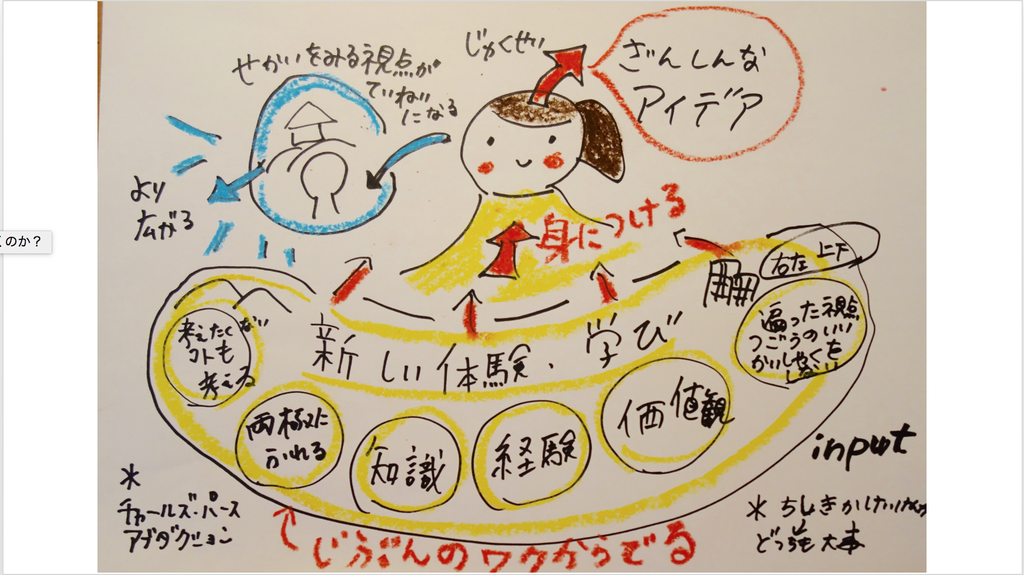 じゅくせい
ざんしんな
アイデア
せかいをみる視点が
ていねい
になる
より
広がる
くのか？
身につける
右左 上下
偏った視点
つごうのいい
かいしゃくを
しない
新しい体験、学び
考えたくない
コトも
考える
両極に
ふれる
知識
経験
価値観
input
*
チャールズ・パース
アブダクション
じぶんのワクからでる
* ちしきかけいけんか
どっちも大事